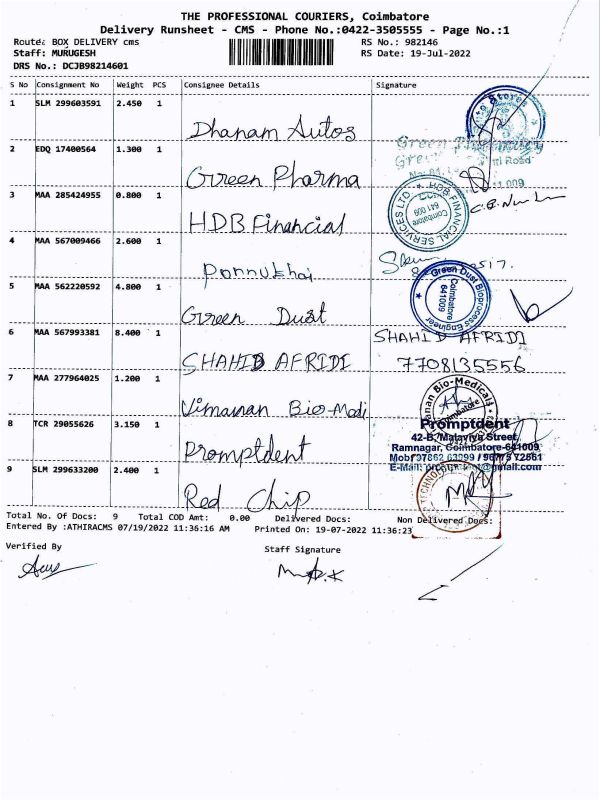 THE PROFESSIONAL COURIERS, Coimbatore
Delivery Runsheet - CMS - Phone No.:0422-3505555 - Page No.:1
Route: BOX DELIVERY cms RS No.: 982146
Staff: MURUGESH RS Date: 19-Jul-2022
DRS No.: DCJB98214601
S No Consignment No Weight PCS Consignee Details Signature
1 SLM 299603591 2.450 1
Dhanam Autos
2 EDQ 17400564 1.300 1
Green Pharma
Green Pharmacy
3 MAA 285424955 0.800 1
HDB Financial
HDB FINANCIAL SERVICES LTD
Coimbatore
641 009
4 MAA 567009466 2.600 1
Ponnukhai
5 MAA 562220592 4.800 1
Green Dust
Green Dust Bioprocess Engineer
Coimbatore
641009
6 MAA 567993381 8.400 1
SHAHID AFRIDI
SHAHID AFRIDI
7708135556
7 MAA 277964025 1.200 1
Vimanan Bio-Medi
8 TCR 29055626 3.150 1
Promptdent
Promptdent
42-B, Malaviya Street,
Ramnagar, Coimbatore-641009
9 SLM 299633200 2.400 1
Red Chip
Total No. Of Docs: 9 Total COD Amt: 0.00 Delivered Docs: Non Delivered Docs:
Entered By :ATHIRACMS 07/19/2022 11:36:16 AM Printed On: 19-07-2022 11:36:23
Verified By Staff Signature